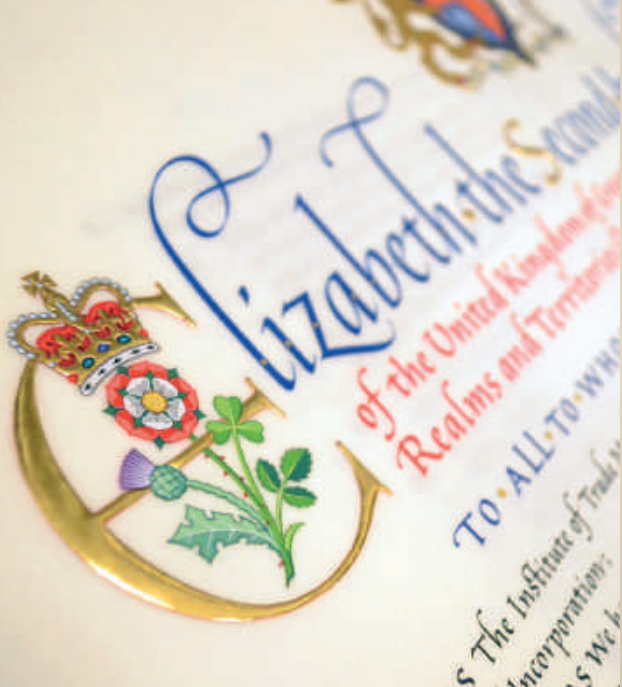 Elizabeth·the·Second
of the United Kingdom of
Realms and Territories
TO·ALL·TO·WHO
S The Institute of Trade M
Incorporation:
S We h